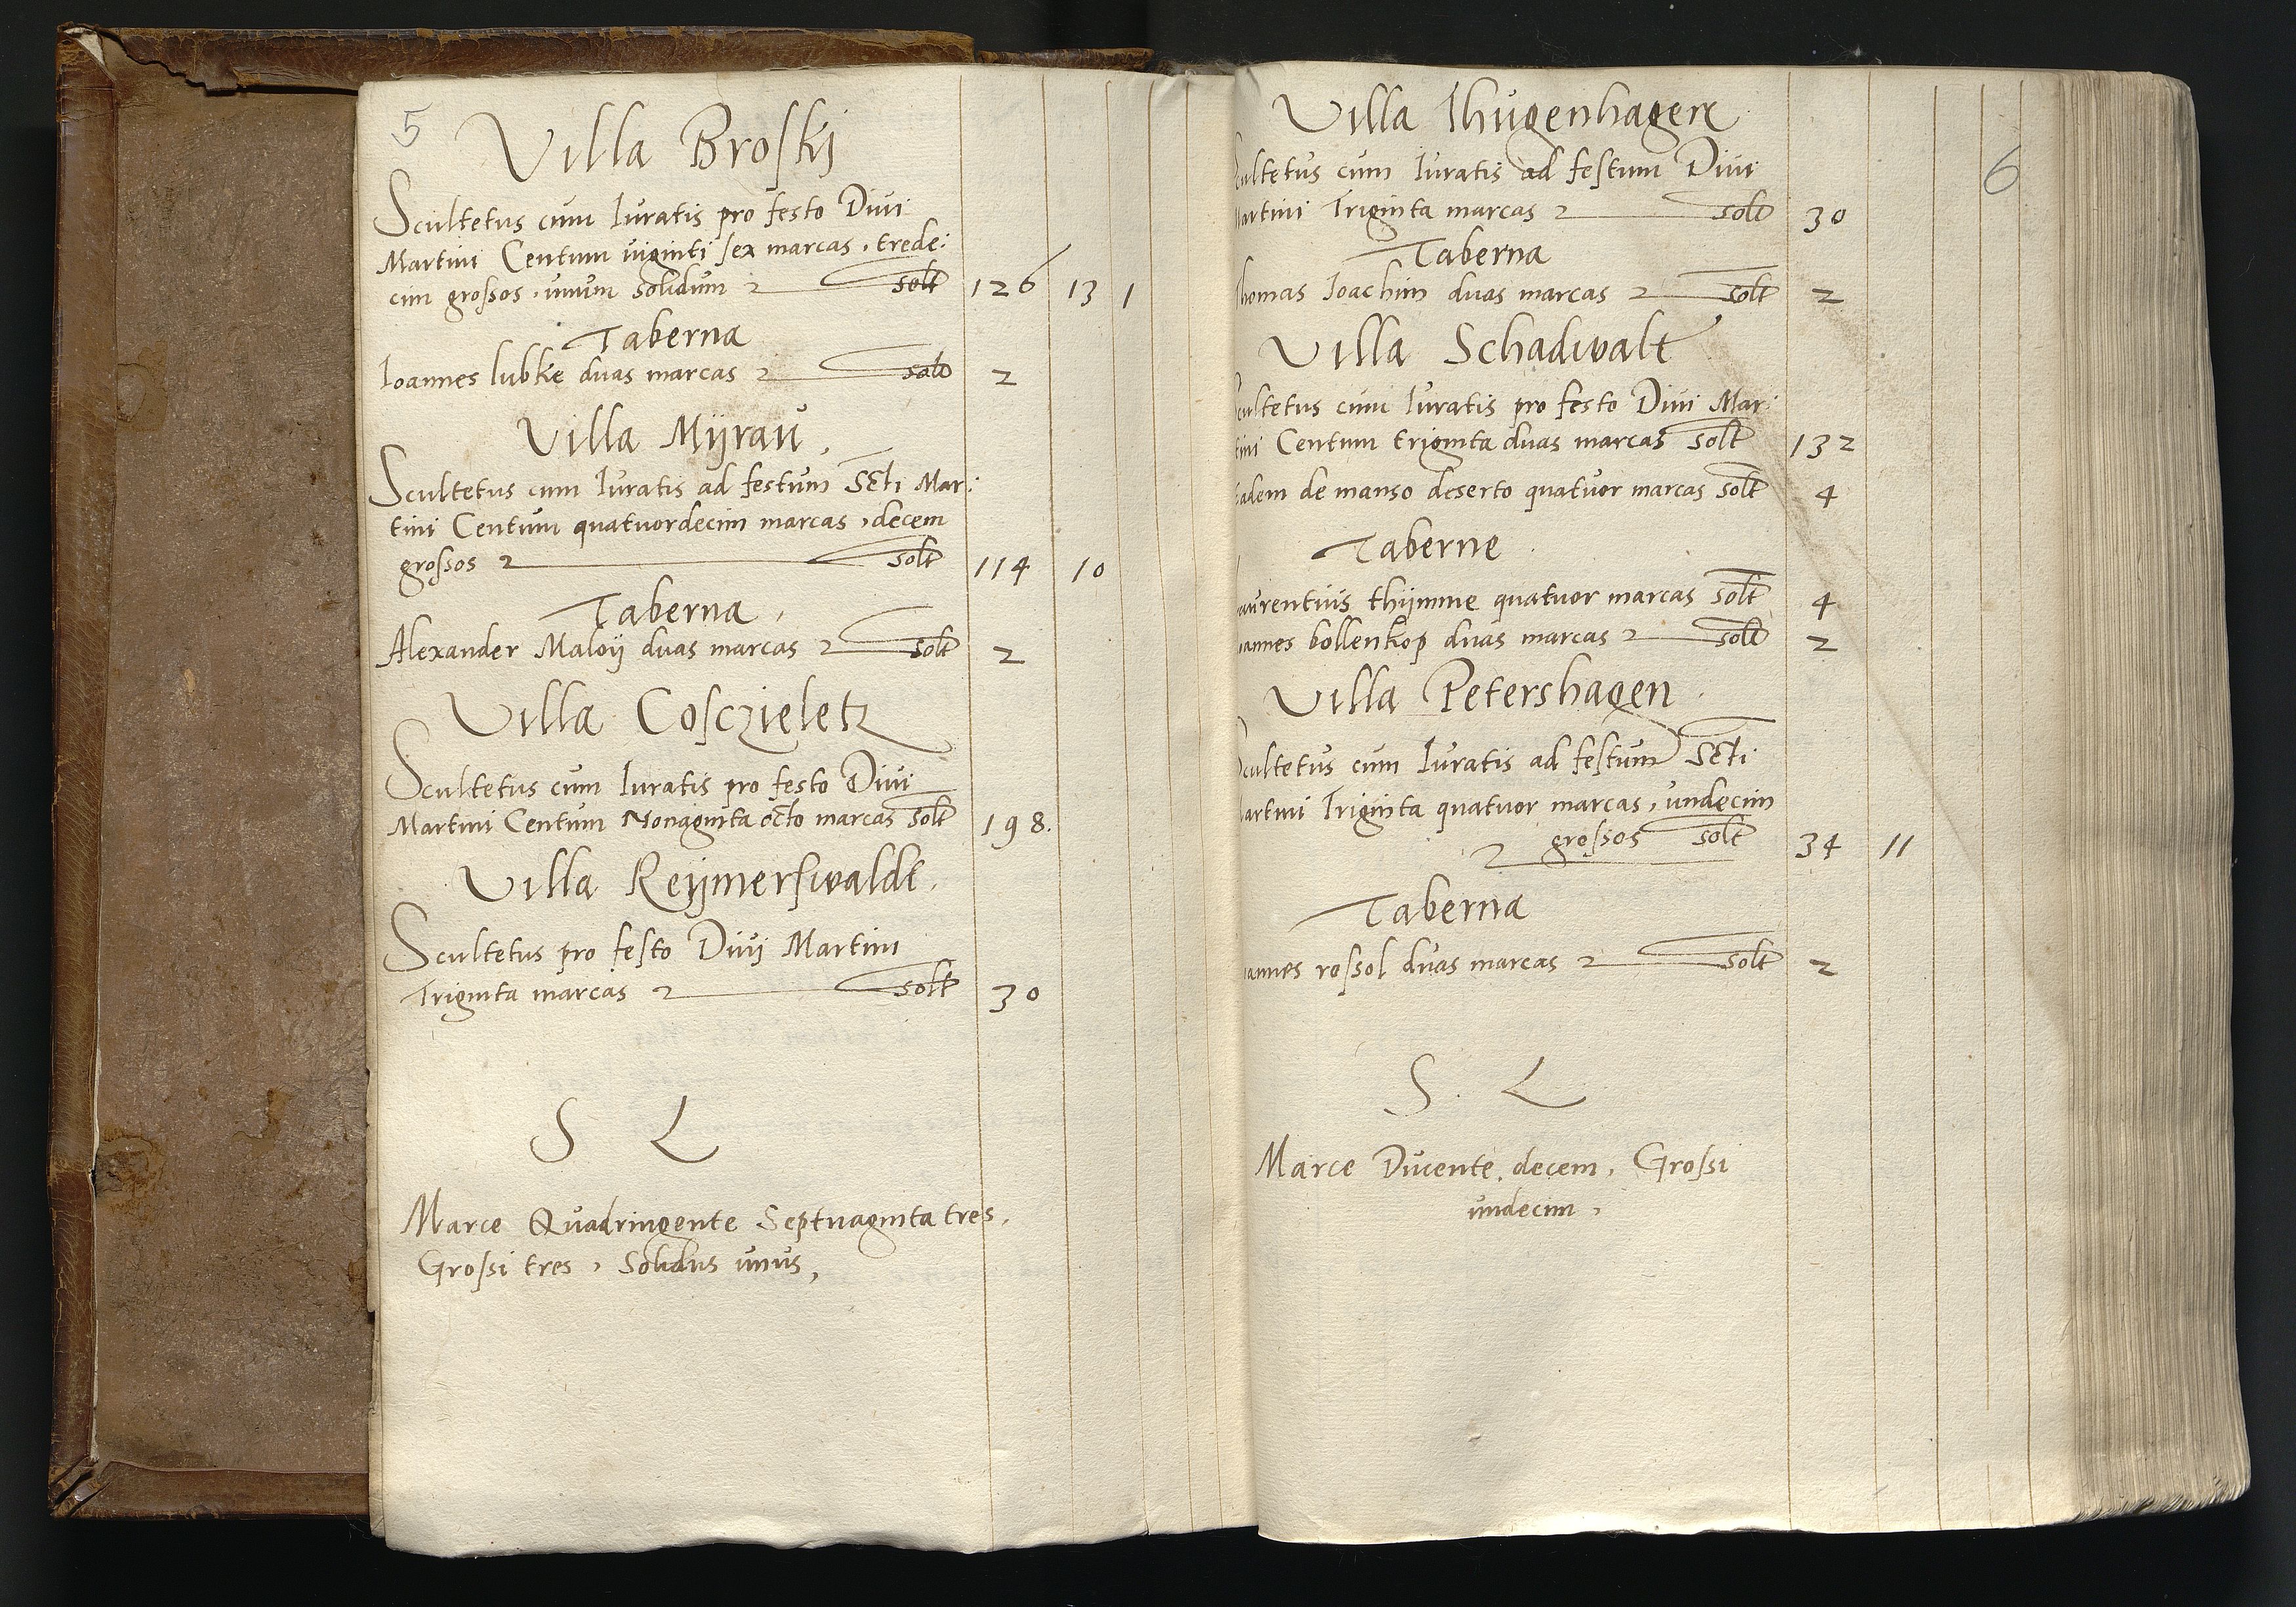 5
Villa Broskj
Scultetus cum Iuratis pro festo Divi
Martini Centum viginti sex marcas, trede:
cim grossos, unum solidum solt 126 13 1
Taberna
Ioannes lubke duas marcas solt 2
Villa Mijrau
Scultetus cum Iuratis ad festum Scti Mar:
tini Centum quatuordecim marcas, decem
grossos solt 114 10
Taberna
Alexander Maloij duas marcas solt 2
Villa Cosczieletz
Scultetus cum Iuratis pro festo Divi
Martini Centum Nonaginta octo marcas solt 198.
Villa Reijmerswalde
Scultetus pro festo Divj Martini
Triginta marcas solt 30
S L
Marce Quadringente Septuaginta tres,
Grossi tres, Solidus unus,
6
Villa Thugenhagen
cultetus cum Iuratis ad festum Divi
artini Triginta marcas solt 30
Taberna
homas Ioachim duas marcas solt 2
Villa Schadwalt
cultetus cum Iuratis pro festo Divi Mar:
tini Centum triginta duas marcas solt 132
adem de manso deserto quatuor marcas solt 4
Taberne
aurentius thijmme quatuor marcas solt 4
oannes bollenkop duas marcas solt 2
Villa Petershagen
cultetus cum Iuratis ad festum Scti
artini Triginta quatuor marcas, undecim
grossos solt 34 11
Taberna
oannes rossol duas marcas solt 2
S. L
Marce Ducente decem, Grossi
undecim,